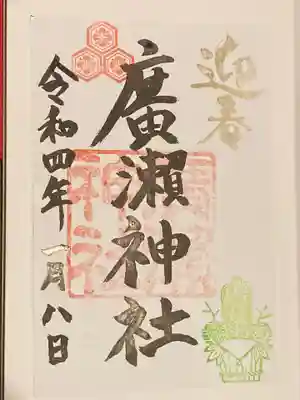 迎春
廣瀬神社
令和四年一月八日